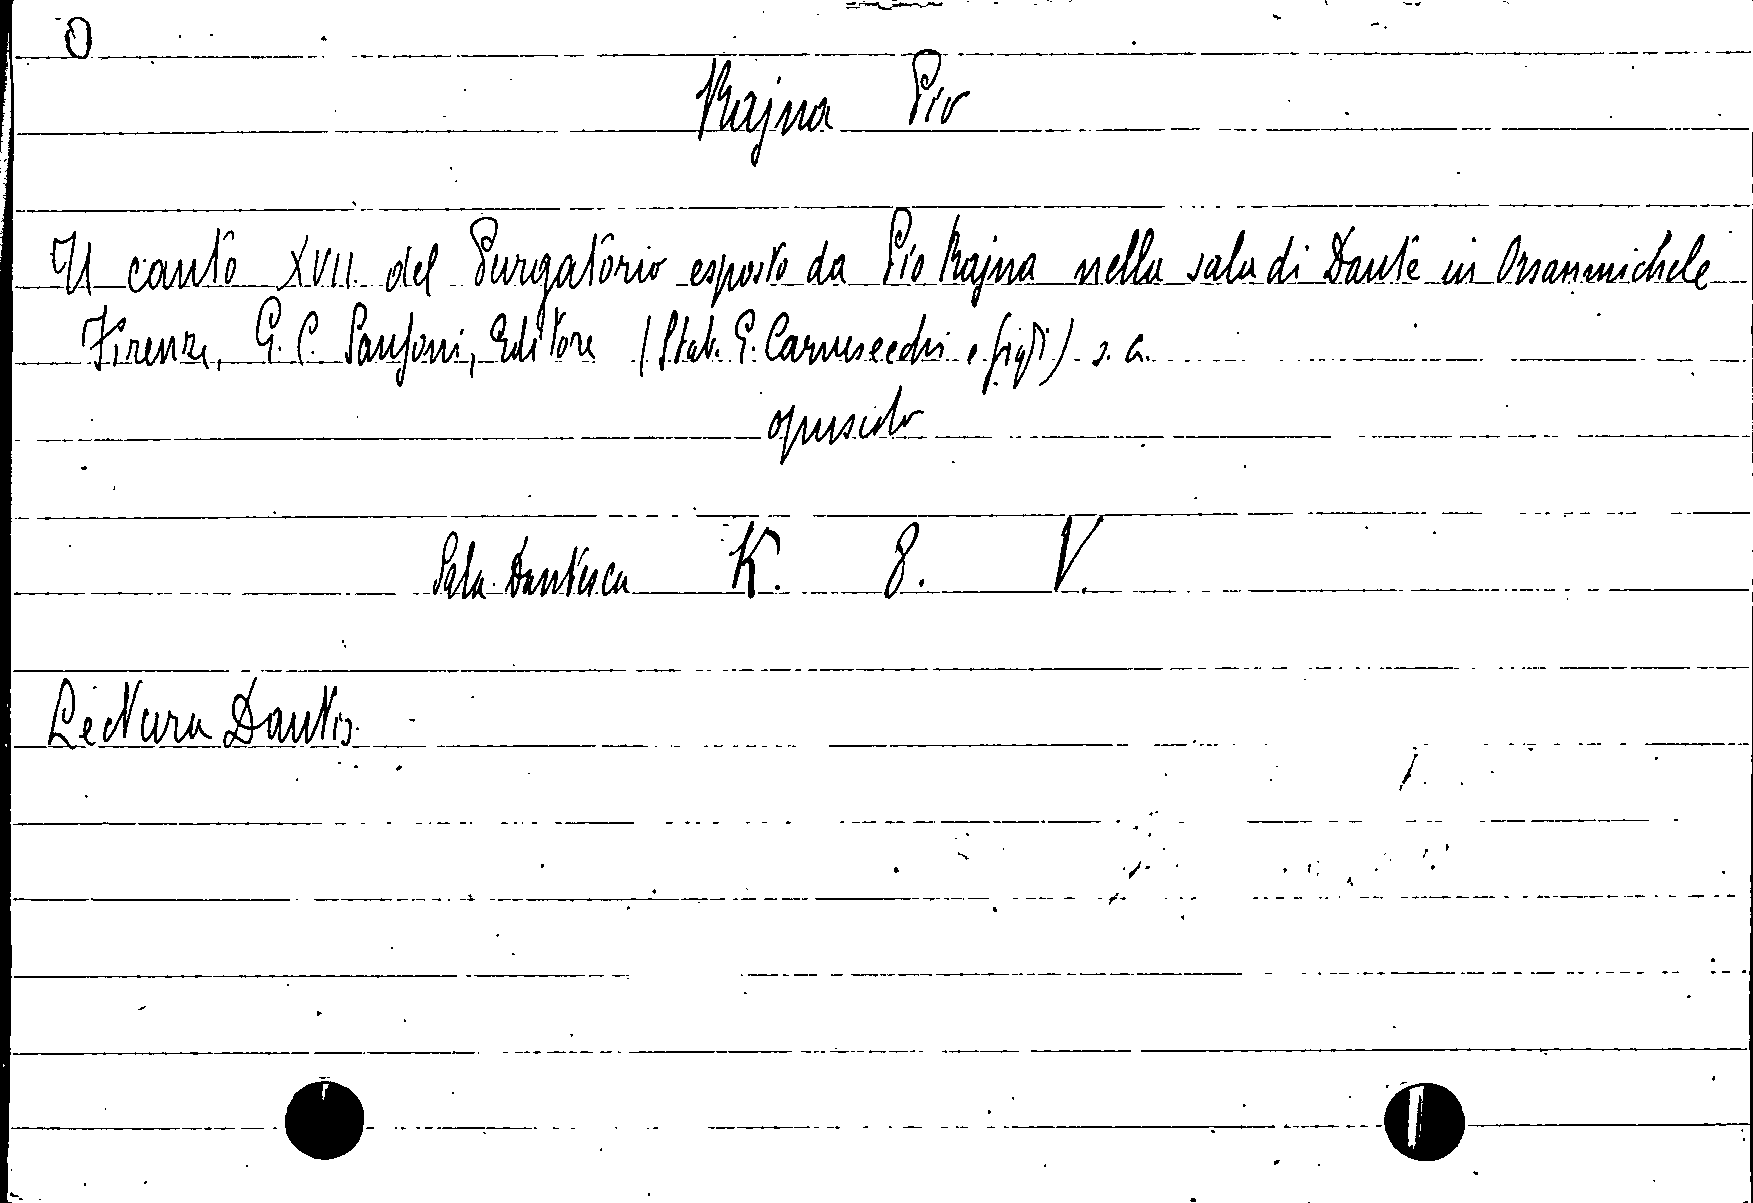 O
Rajna Pio
Il canto XVII. del Purgatorio esposto da Pio Rajna nella sala di Dante in Orsanmichele
Firenze, G. C. Sansoni, Editore (Stab. G. Carnesecchi e figli) s. a.
opuscolo
Sala Dantesca K. 8. V.
Lectura Dantis.